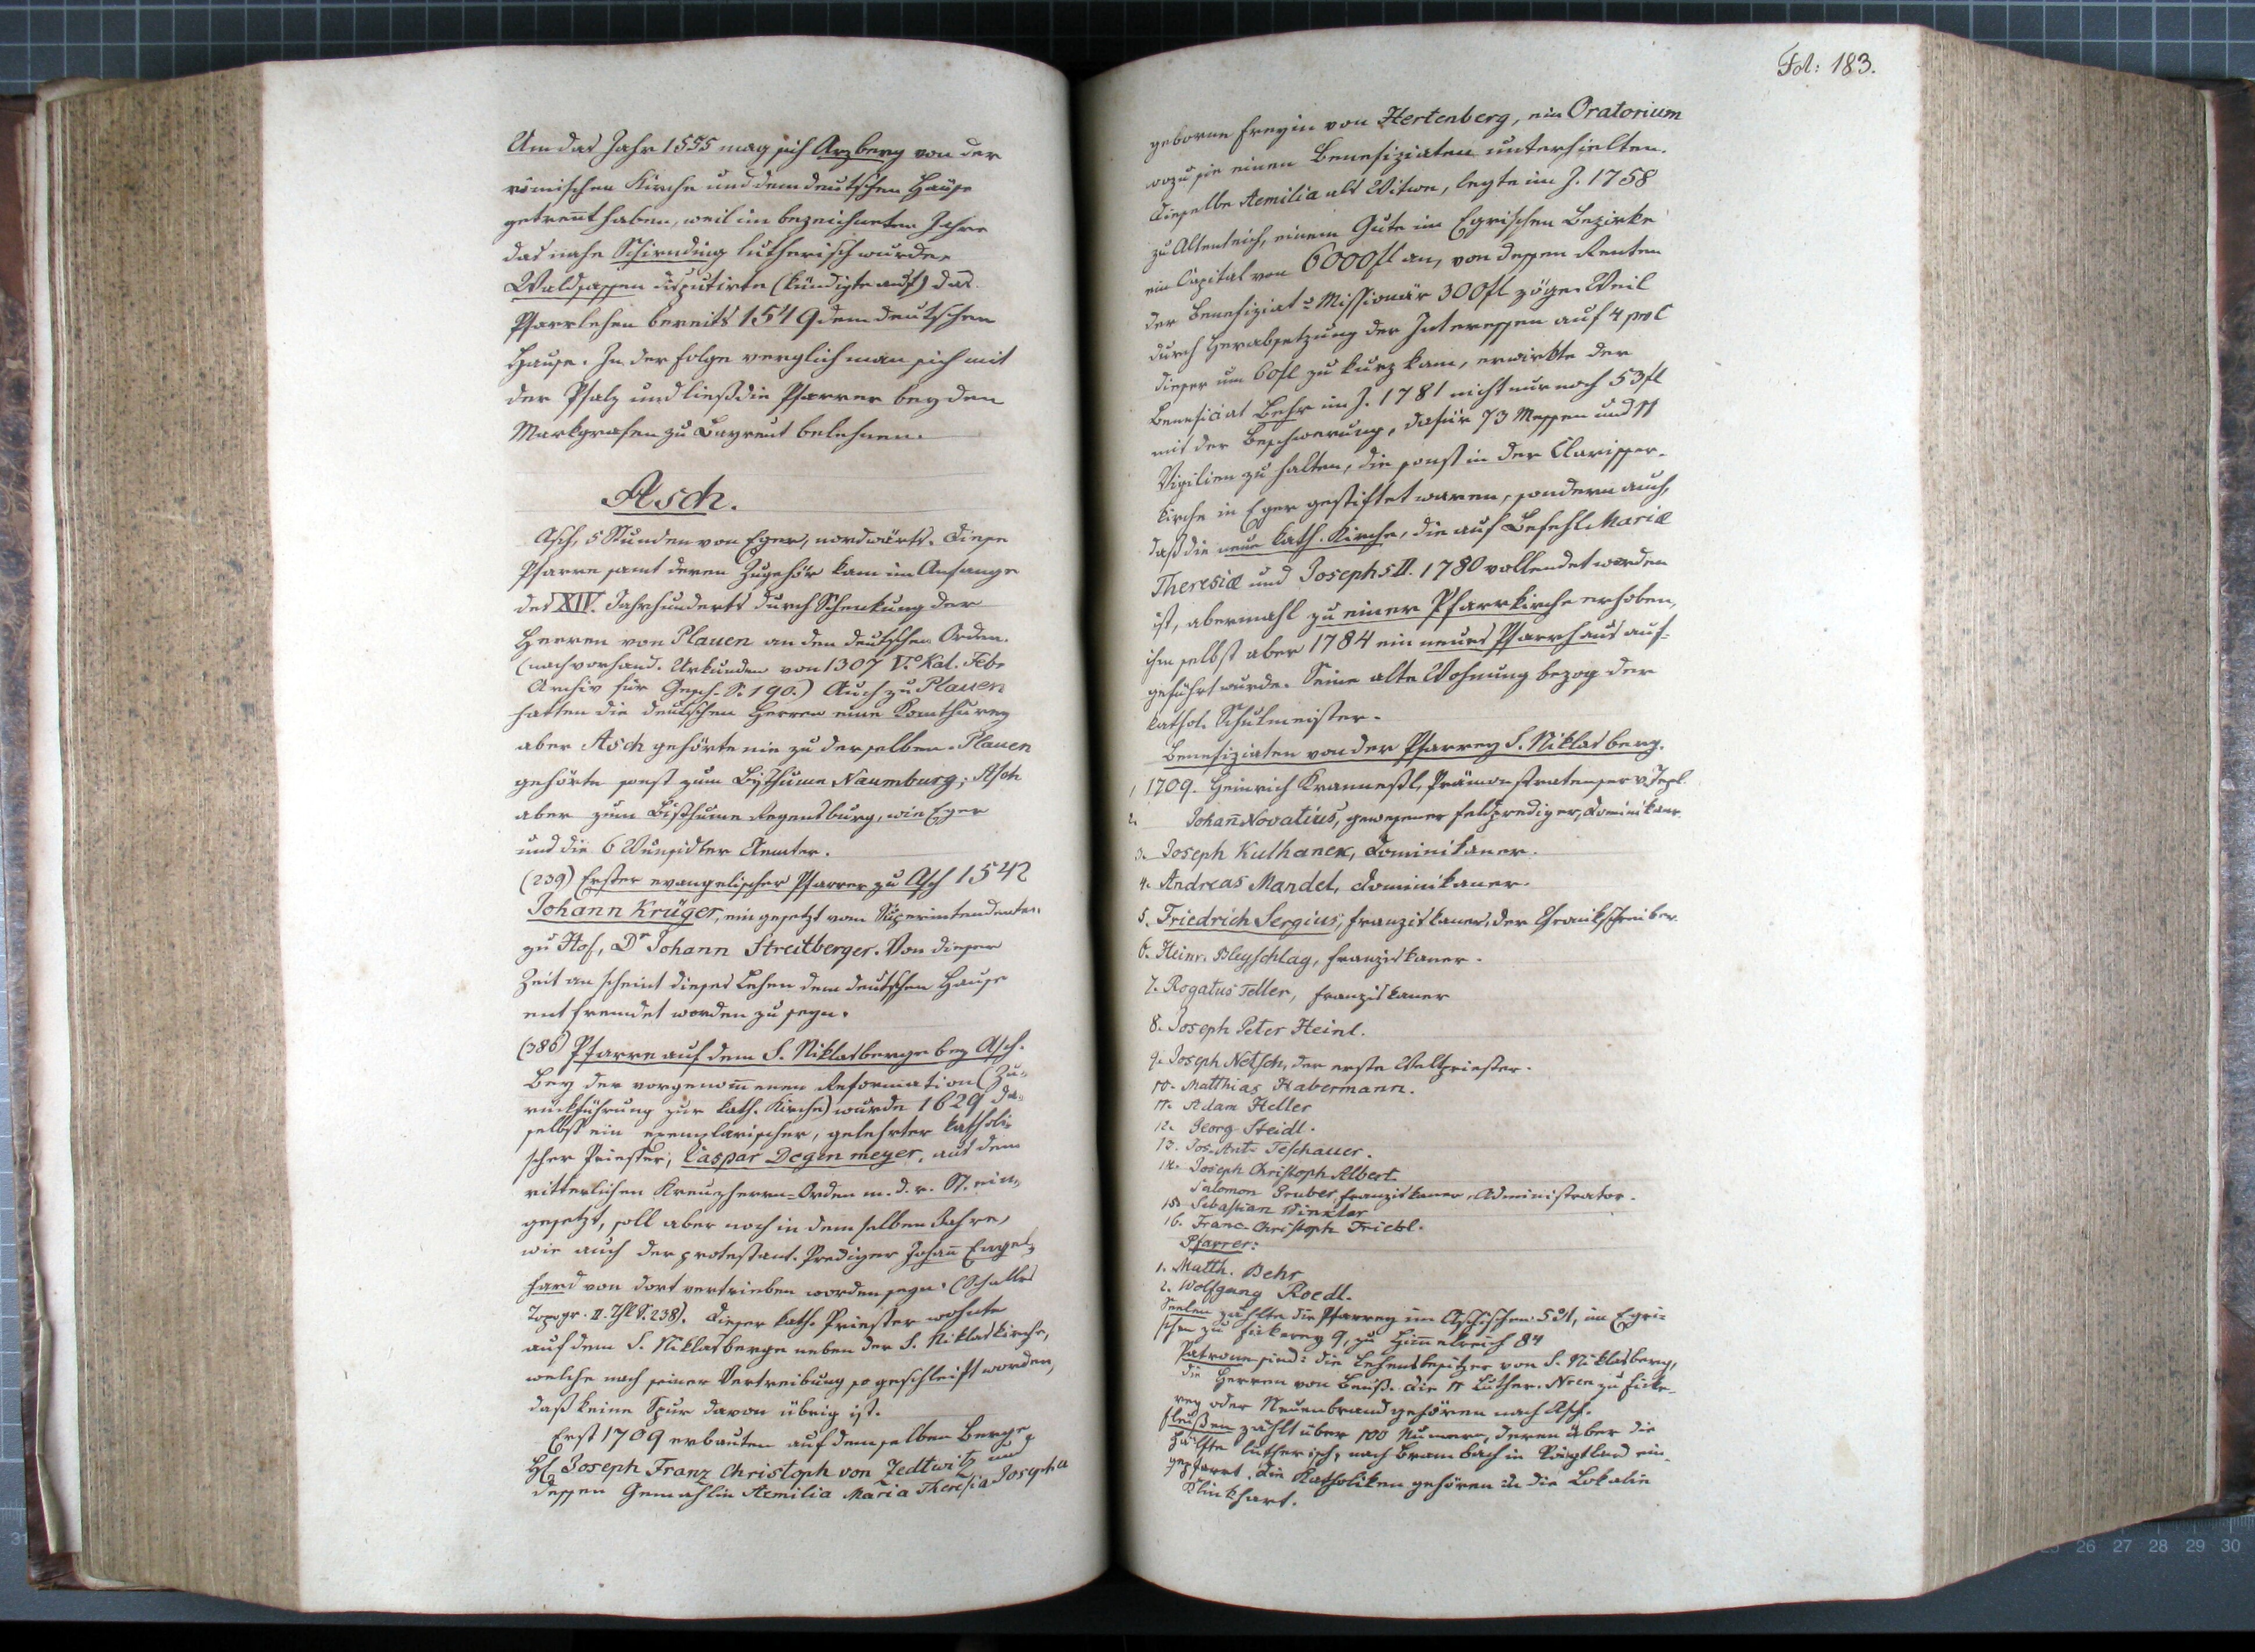 Um das Jahr 1555 mag sich Arzberg von der
römischen Kirche und dem deutschen Hause
getrennt haben, weil im bezeichneten Jahre
das nahe Schirnding lutherisch wurde.
Waldsassen disputirte (kündigte auf) das
Pfarrlehen bereits 1549 dem deutschen
Hause. In der Folge verglich man sich mit
der Pfalz und ließ die Pfarrer bey den
Markgrafen zu Bayreut belehnen.
Asch.
Asch, 5 Stunden von Eger, nordwärts. Diese
Pfarre samt deren Zugehör kam im Anfange
des XIV. Jahrhunderts durch Schenkung der
Herren von Plauen an den deutschen Orden.
(nach vorhand. Urkunden von 1307 V.º Kal. Feb.
Archiv für Gesch. S. 190.) Auch zu Plauen
hatten die deutschen Herren eine Komthurey
aber Asch gehörte nie zu derselben. Plauen
gehörte sonst zum Bisthume Naumburg; Asch
aber zum Bisthume Regensburg, wie Eger
und die 6 Wunsidler Aemter.
(239) Erster evangelischer Pfarrer zu Asch 1542
Johann Krüger, eingesetzt vom Superintendenten
zu Hof, Dr Johann Streitberger. Von dieser
Zeit an scheint dieses Lehen dem deutschen Hause
entfremdet worden zu seyn.
(386) Pfarre auf dem S. Niklasberge bey Asch.
Bey der vorgenom̄enen Reformation (Zu-
rückführung zur kath. Kirche) wurde 1629 da-
selbst ein exemplarischer, gelehrter katholi-
scher Priester, Caspar Degenmeyer, aus dem
ritterlichen Kreuzherrn-Orden m. d. r. St. ein-
gesetzt, soll aber noch in demselben Jahre,
wie auch der protestant. Prediger Johan̄ Engel-
hard von dort vertrieben worden seyn. (Schalles
Topogr. II. Thl S. 238). Dieser kath. Priester wohnte
auf dem S. Niklasberge neben der S. Niklaskirche,
welche nach seiner Vertreibung so geschleift worden,
daß keine Spur davon übrig ist.
Erst 1709 erbauten auf demselben Berge
H. Joseph Franz Christoph von Zedtwitz und
dessen Gemahlin Aemilia Maria Theresia Josepha
Fol: 183.
geborne Freyin von Hertenberg, ein Oratorium
wozu sie einen Benefiziaten unterhielten.
Dieselbe Aemilia als Witwe, legte im J. 1758
zu Altenteich, einem Gute im Egrischen Bezirke
ein Capital von 6000 fl an, von dessen Renten
der Benefiziat-Missionär 300 fl zöge. Weil
durch Herabsetzung der Interessen auf 4 pro C
dieser um 60 fl zu kurz kam, erwirkte der
Beneficiat Behr im J. 1781 nicht nur noch 53 fl
mit der Beschwerung, dafür 73 Messen und 11
Vigilien zu halten, die sonst in der Clarisser-
kirche in Eger gestiftet waren, sondern auch,
daß die neue kath. Kirche, die auf Befehl Mariæ
Theresiæ und Josephs II. 1780 vollendet worden
ist, abermahl zu einer Pfarrkirche erhoben,
ihm selbst aber 1784 ein neues Pfarrhaus auf-
geführt wurde. Seine alte Wohnung bezog der
kathol. Schulmeister.
Benefiziaten von der Pfarrey S. Niklasberg.
1, 1709. Heinrich Kranneßl, Prämonstratenser v. Tepl.
2. Johan̄ Novatius, gewesener Feldprediger, Dominikaner
3. Joseph Kulhanek, Dominikaner.
4. Andreas Mandel, Dominikaner.
5. Friedrich Sergius, Franziskaner, der Chronikschreiber.
6. Heinr. Bleyschlag, Franziskaner.
7. Rogatus Teller, Franziskaner
8. Joseph Peter Heinl.
9. Joseph Netsch, der erste Weltpriester.
10. Matthias Habermann.
11. Adam Heller
12. Georg Steidl.
13. Jos. Ant. Teschauer.
14. Joseph Christoph Albert.
Salomon Gruber, Franziskaner, Administrator.
15. Sebastian Winkler
16. Franc. Christoph Triebl.
Pfarrer:
1. Matth. Behr
2. Wolfgang Roedl.
Seelen zählte die Pfarrey im Aschischen 501, im Egri-
schen zu Fickerey 9, zu Him̄elreich 84
Patrone sind: die Lehensbesitzer von S. Niklasberg,
die Herren von Beuß. Die 11 Luther. Nren zu Ficke-
rey oder Neuenbrand gehören nach Asch.
Fleußen zählt über 100 Numern, deren über die
Hälfte lutherisch, nach Brambach in Voigtland ein-
gepfarrt. Die Katholiken gehören in die Lokalie
Klinkhart.